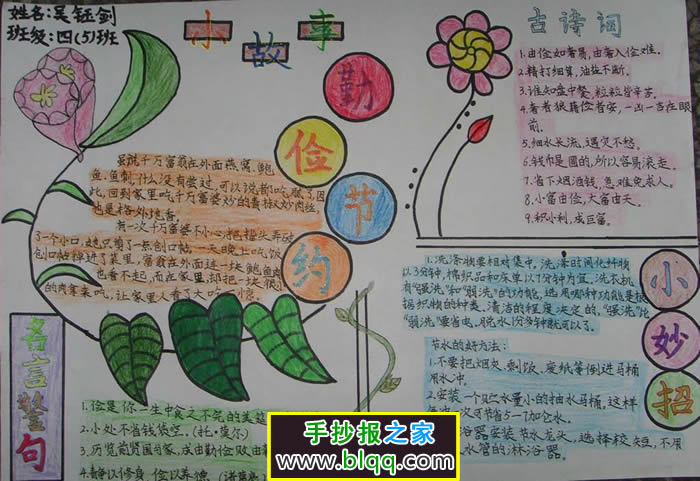 姓名:吴钰剑
班级:四(5)班
小故事
勤俭节约
虽说千万富翁在外面燕窝、鲍
鱼、鱼刺,什么没有尝过,可以说都吃腻了,因
此,回到家里吃千万富婆炒的青椒炒肉丝,
也是格外地香。
有一次千万富婆不小心把指头弄破
了一个小口,她只剪了一点创口帖,一天晚上吃饭
创口帖掉进了菜里,富翁在外面连一块鲍鱼肉
也看不起,而在家里,却把一块很小
的肉拿来吃,让家里人看了大吃一惊。
古诗词
1.由俭如奢易,由奢入俭难。
2.精打细算,油盐不断。
3.谁知盘中餐,粒粒皆辛苦。
4.奢者狼藉俭者安,一凶一吉在眼
前。
5.细水长流,遇灾不愁。
6.钱币是圆的,所以容易滚走。
7.省下烟酒钱,急难免求人。
8.小富由俭,大富由天。
9.积小利,成巨富。
小妙招
1.洗涤物要相对集中。洗涤时间化纤物
以3分钟,棉织品和床单以7分钟为宜,洗衣机
有“强洗”和“弱洗”的功能,选用哪种功能是根
据织物的种类、清洁的程度决定的,“强洗”比
“弱洗”要省电。脱水1分多钟就可以了。
节水的好方法:
1.不要把烟灰、剩饭、废纸等倒进马桶
用水冲。
2.安装一个贮水量小的抽水马桶。这样
可节省5-7加仑水。
浴器安装节水龙头,选择较短、不用
水管的淋浴器。
名言警句
1.俭是你一生中食之不完的美筵
2.小处不省钱袋空。(托·莫尔)
3.历览前贤国与家,成由勤俭败由
4.静以修身 俭以养德
手抄报之家
www.blqq.com